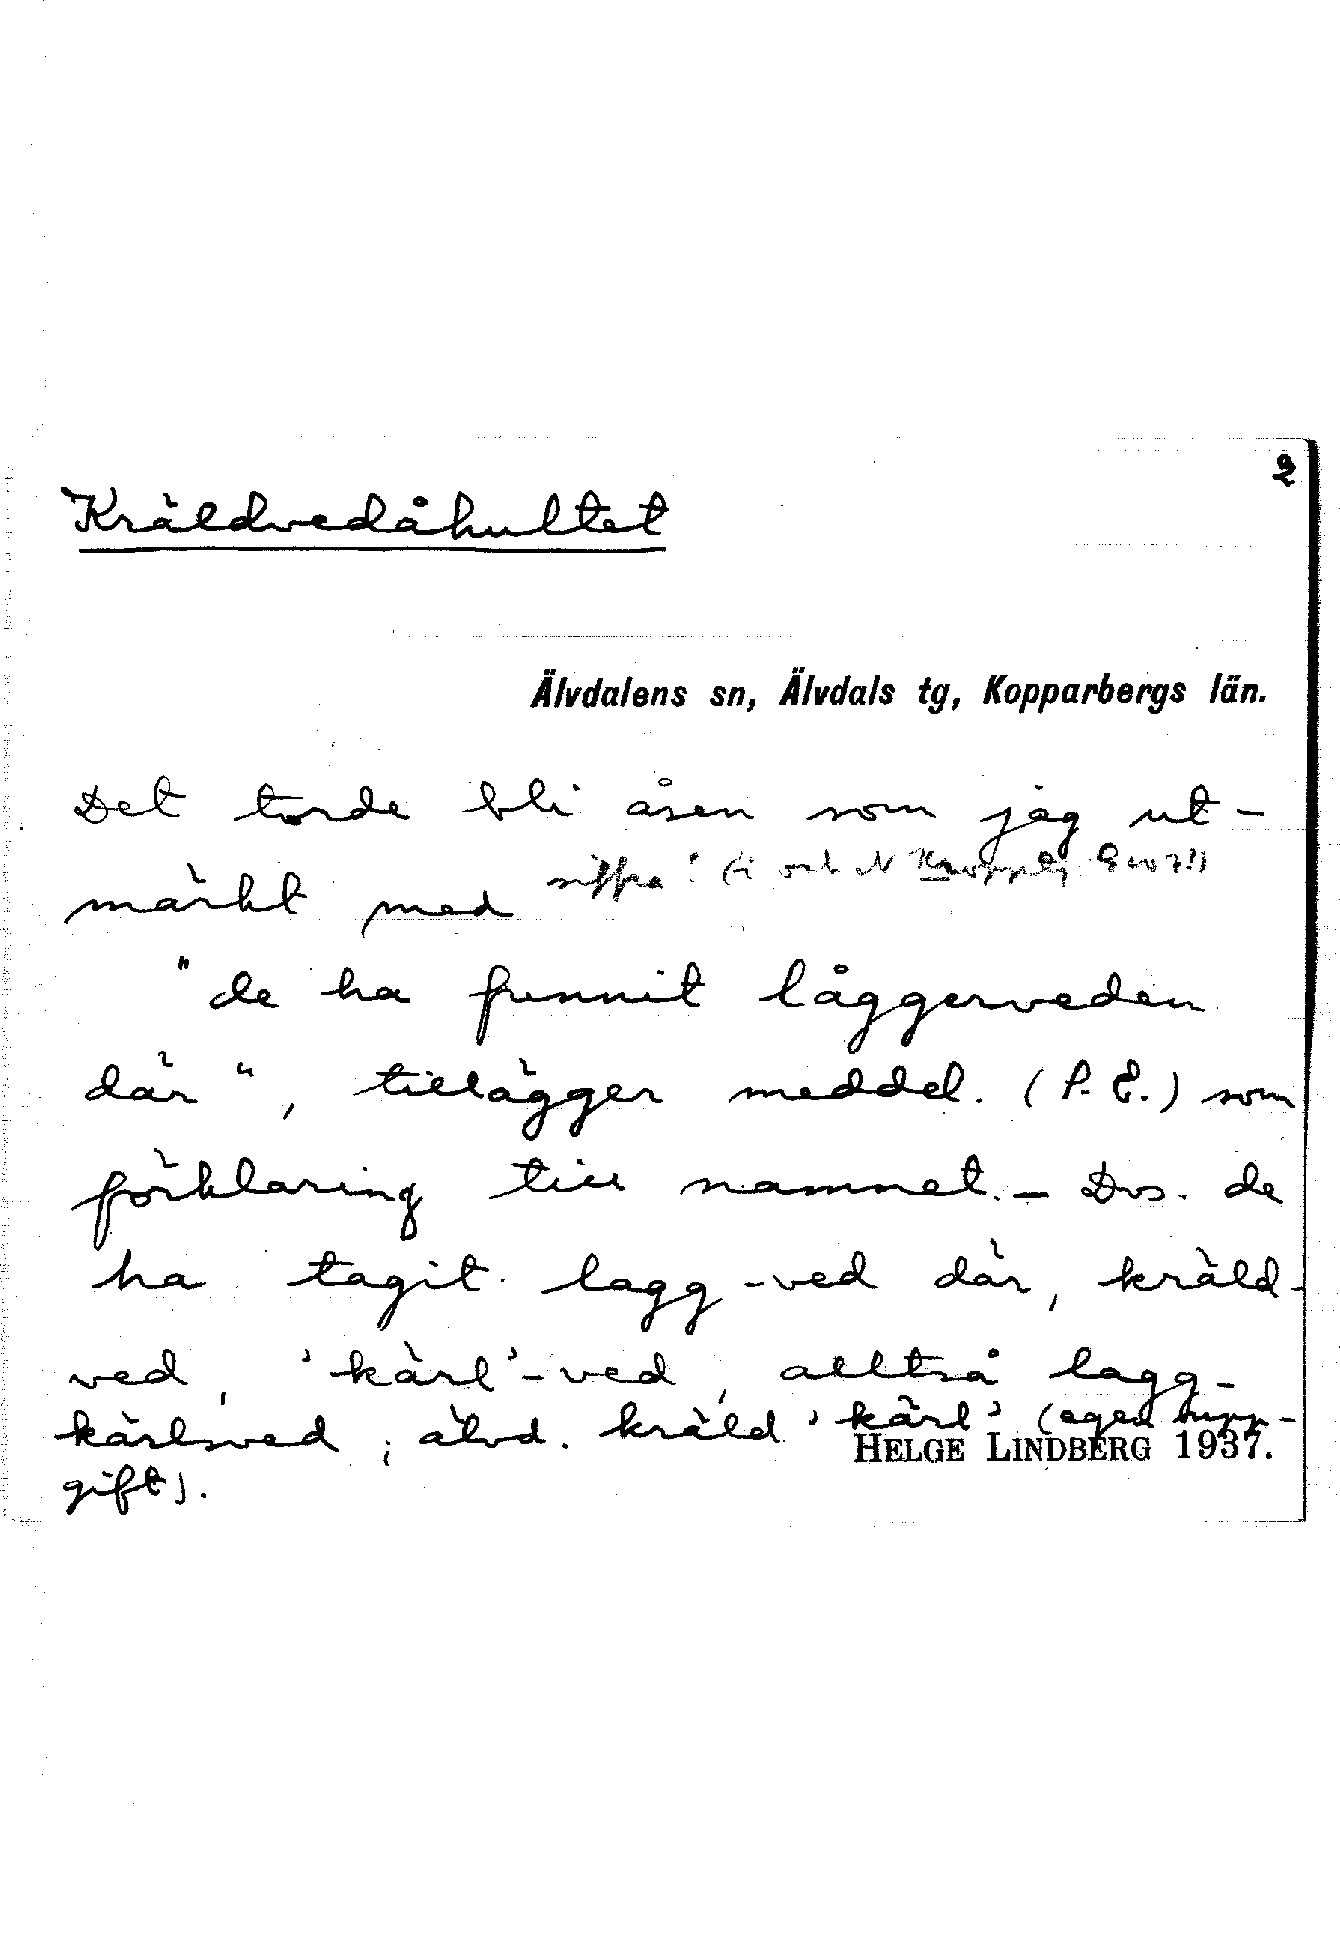 2
Kräldvedåhultet
Älvdalens sn, Älvdals tg, Kopparbergs län.
Det torde bli åsen som jag ut-
märkt med siffra
"de ha funnit låggerveden
där", tillägger meddel. (P. E.) som
förklaring till namnet. – Dvs. de
ha tagit lagg-ved där, kräld-
ved, 'kärl'-ved, alltså lagg-
kärlsved; älvd. kräld 'kärl' (egen upp-
HELGE LINDBERG 1937.
gift).